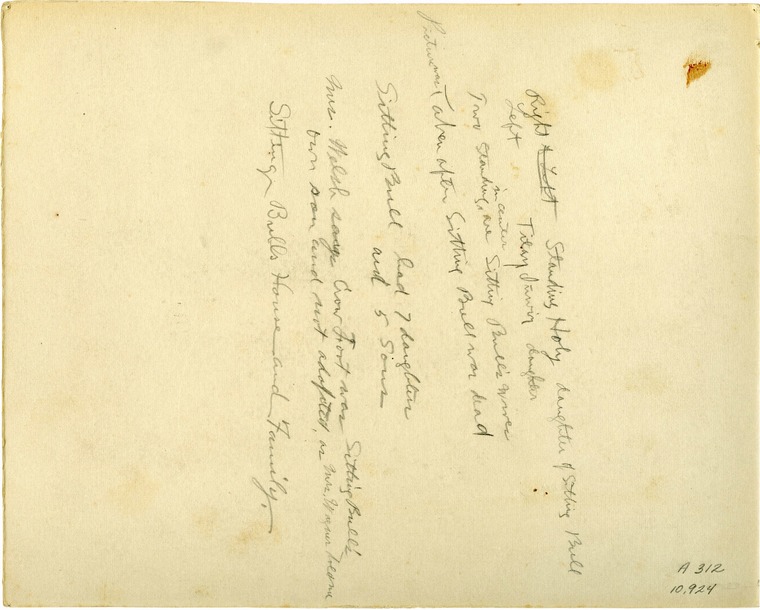 Right & Left Standing Holy daughter of Sitting Bull
Left Tiling daughter
in center
Two standing, are Sitting Bull's wives
Picture Taken after Sitting Bull was dead
Sitting Bull had 7 daughters
and 5 Sons
Mrs. Welsh says Crow Foot was Sitting Bull's
own son and not adopted, as Mrs.
Sitting Bulls House and Family.
A 312
10.924